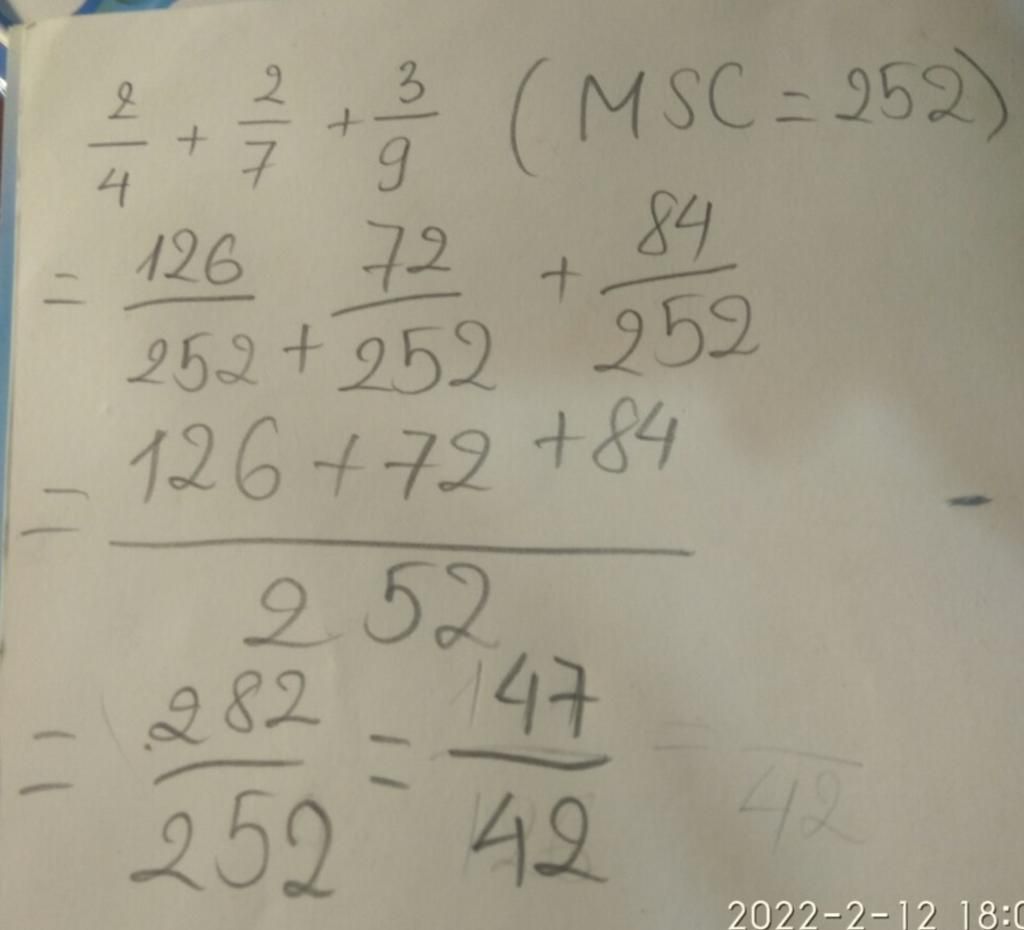 2/4 + 2/7 + 3/9 (MSC = 252)
= 126/252 + 72/252 + 84/252
= (126 + 72 + 84)/252
= 282/252 = 47/42
2022-2-12 18:0